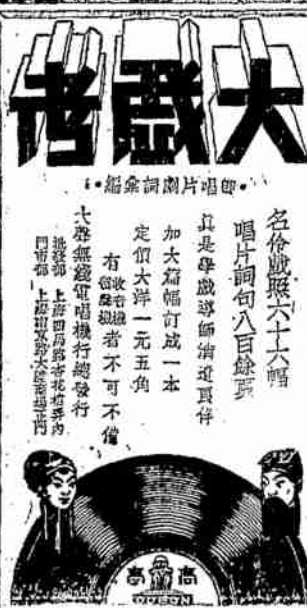 大戲考
・即唱片劇詞彙編・
名伶戲照六十六幅
唱片詞句八百餘頁
真是學戲導師消遣良伴
加大篇幅訂成一本
定價大洋一元五角
有收音機留聲機者不可不備
大聲無綫電唱機行總發行
批發部 上海四馬路杏花樓弄內
門市部 上海南京路大陸商場正門
高 高
ODEON